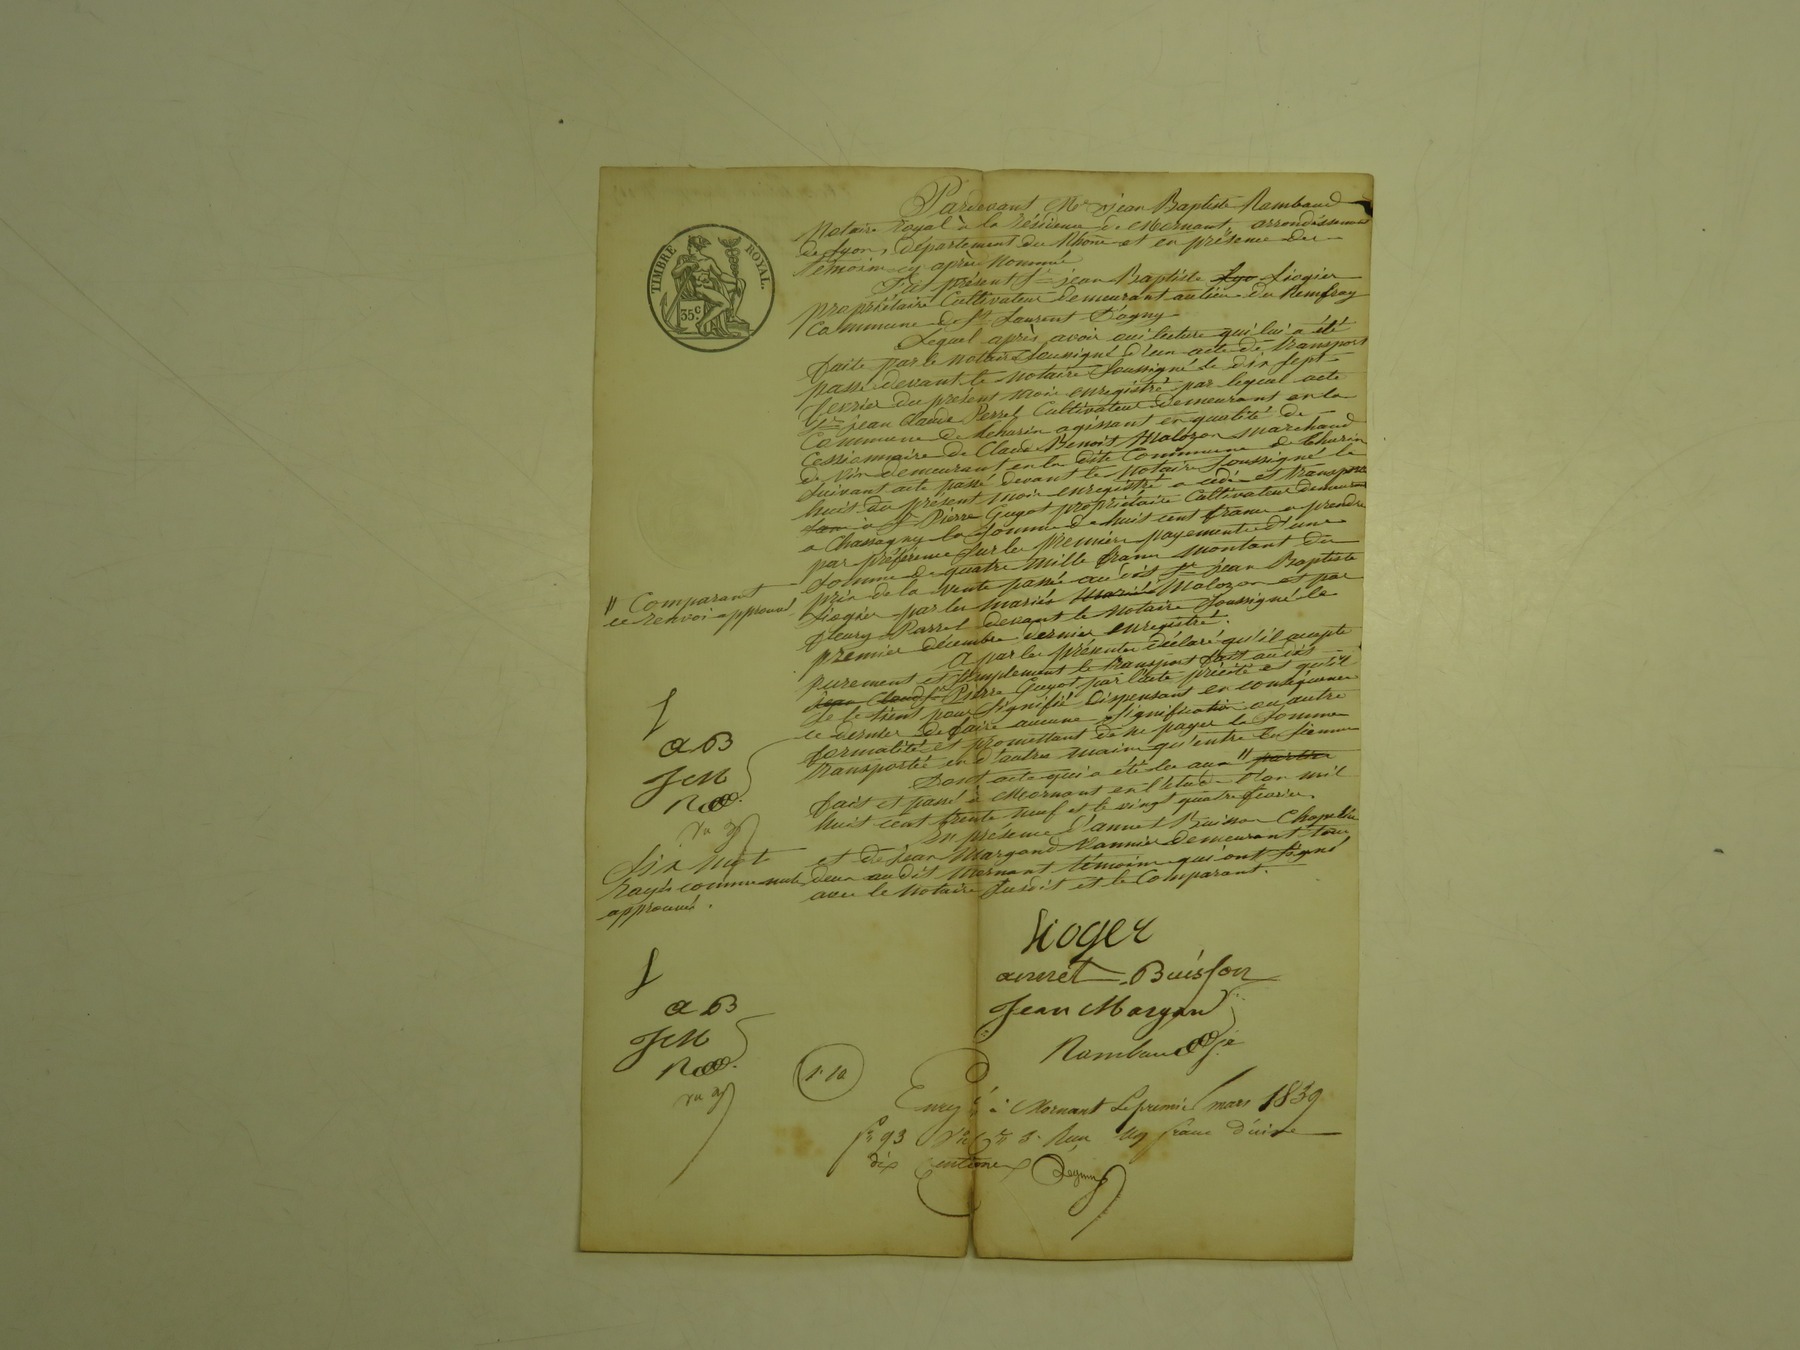 TIMBRE ROYAL.
35 c.
Pardevant Me Jean Baptiste Rambaud
Notaire Royal à la Résidence de Mornant, arrondissement
de Lyon, département du Rhône et en présence des
témoins cy après nommés
Fut présent Sr jean Baptiste Lyo Liogier
propriétaire Cultivateur demeurant au lieu du
Commune de St Laurent D'agny
Lequel après avoir oui lecture qui lui a été
faite par le notaire soussigné d'un acte de transport
passé devant le notaire soussigné le dix sept
fevrier du présent mois enregistré par lequel acte
Sr jean Claude Perret Cultivateur demeurant en la
Commune de Chussin agissant en qualité de
Cessionnaire de Claude Benoit Malozon marchand
de vin demeurant en la dite Commune de
suivant acte passé devant le Notaire soussigné le
huit du présent mois enregistré a cédé et transporté
à Sr Pierre Guyot propriétaire Cultivateur demeurant
a Chassagny la somme de huit cent francs a prendre
par préférence sur les premiers payements d'une
somme de quatre mille francs montant du
prix de la vente passée au dit Sr jean Baptiste
Liogier par les mariés mariés Malozon et par
fleury Parret devant le Notaire soussigné le
premier décembre dernier enregistré.
" Comparant
ce renvoi approuvé
A par les présentes déclaré qu'il accepte
purement et simplement le transport fait au dit
jean Claude Pierre Guyot par l'acte précité et qu'il
se le tient pour signifié dispensant en conséquence
ce dernier de faire aucune signification ou autre
formalités et promettant de ne payer la somme
transportée en d'autres mains qu'entre les siennes
Dont acte qui a été lu aux " parties
fait et passé à Mornant en l'étude l'an mil
huit cent trente neuf et le vingt quatre fevrier.
En présence d'annet Buisson Chapelier
et de jean Margand Vannier demeurant tous
deux au dit Mornant témoins qui ont signé
avec le notaire susdit et le Comparant.
L
a B
JM
R
Six mots
rayés comme nuls
approuvé.
Lioger
annet Buisson
Jean Margan
Rambaud
L
a B
JM
R
Enregé à Mornant Le premier mars 1839
fo 93 Reçu un franc decime
dix Centimes